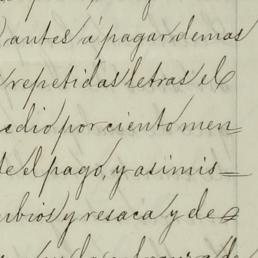 antes á pagar demas
repetidas letras el
edio por ciento men
de el pago, y asimis—
mbios y resaca y de